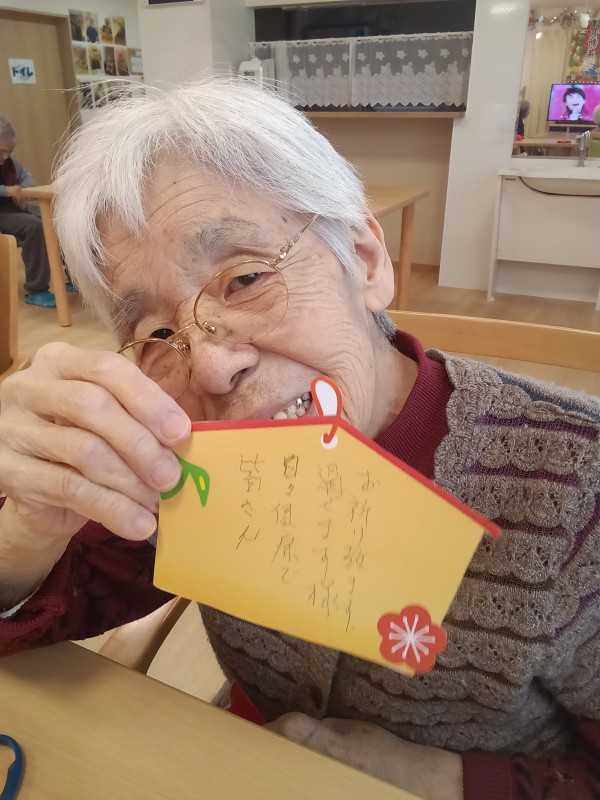 皆さん
日々健康で
過せます様
お祈り致します。
トイレ